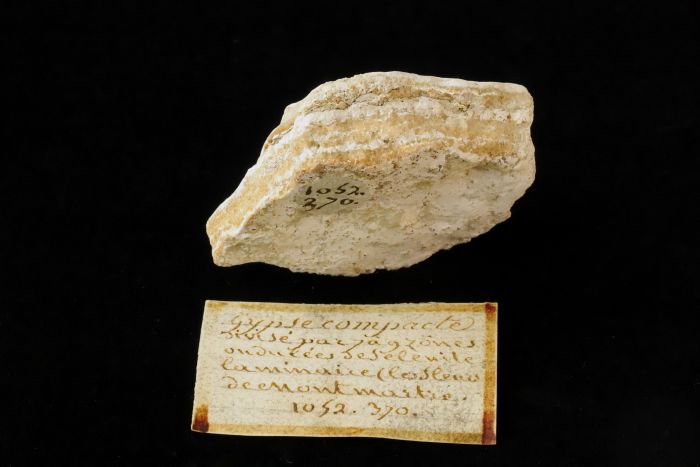 1052.
370.
Gypse compacte
divisé par zônes
ondulées de Sélénite
laminaire (les fleurs
de Montmartre.
1052. 370.